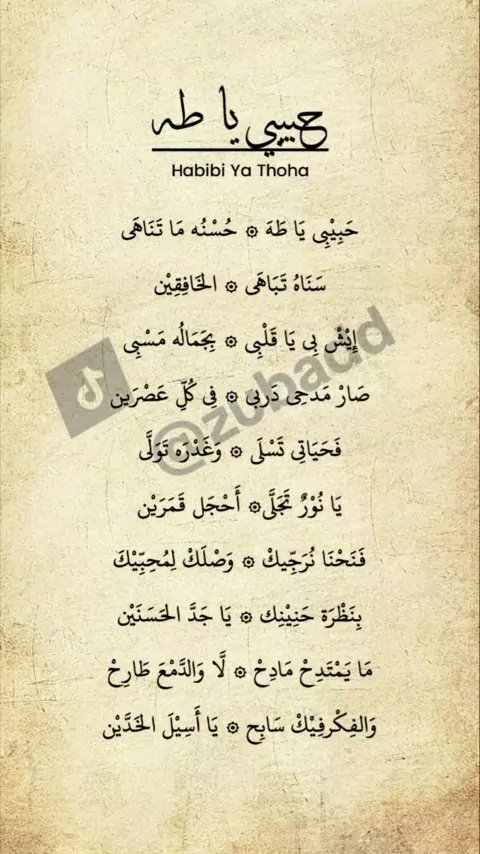 حبيبي يا طه
Habibi Ya Thoha
حَبِيْبِى يَا طَهَ ۞ حُسْنُه مَا تَنَاهَى
سَنَاهُ تَبَاهَى ۞ الخَافِقِيْن
إِيْشْ بِى يَا قَلْبِى ۞ بِجَمَالُه مَسْبِى
صَارْ مَدحِى دَربِى ۞ فِى كُلِّ عَصْرَين
فَحَيَاتِى تَسْلَى ۞ وَغَدْرَه تَوَلَّى
يَا نُوْرٌ تَجَلَّى۞ أَحْجَل قَمَرَيْن
فَنَحْنَا نُرَجِّيكْ ۞ وَصْلَكْ لِمُحِبِّيْكَ
بِنَظْرَة حَنِيْنِك ۞ يَا جَدَّ الحَسَنَيْن
مَا يَمْتَدِحْ مَادِحْ ۞ لَّا وَالدَّمْعَ طَارِحْ
وَالفِكْرفِيْكْ سَابِح ۞ يَا أَسِيْلَ الخَدَّيْن
@zubaud